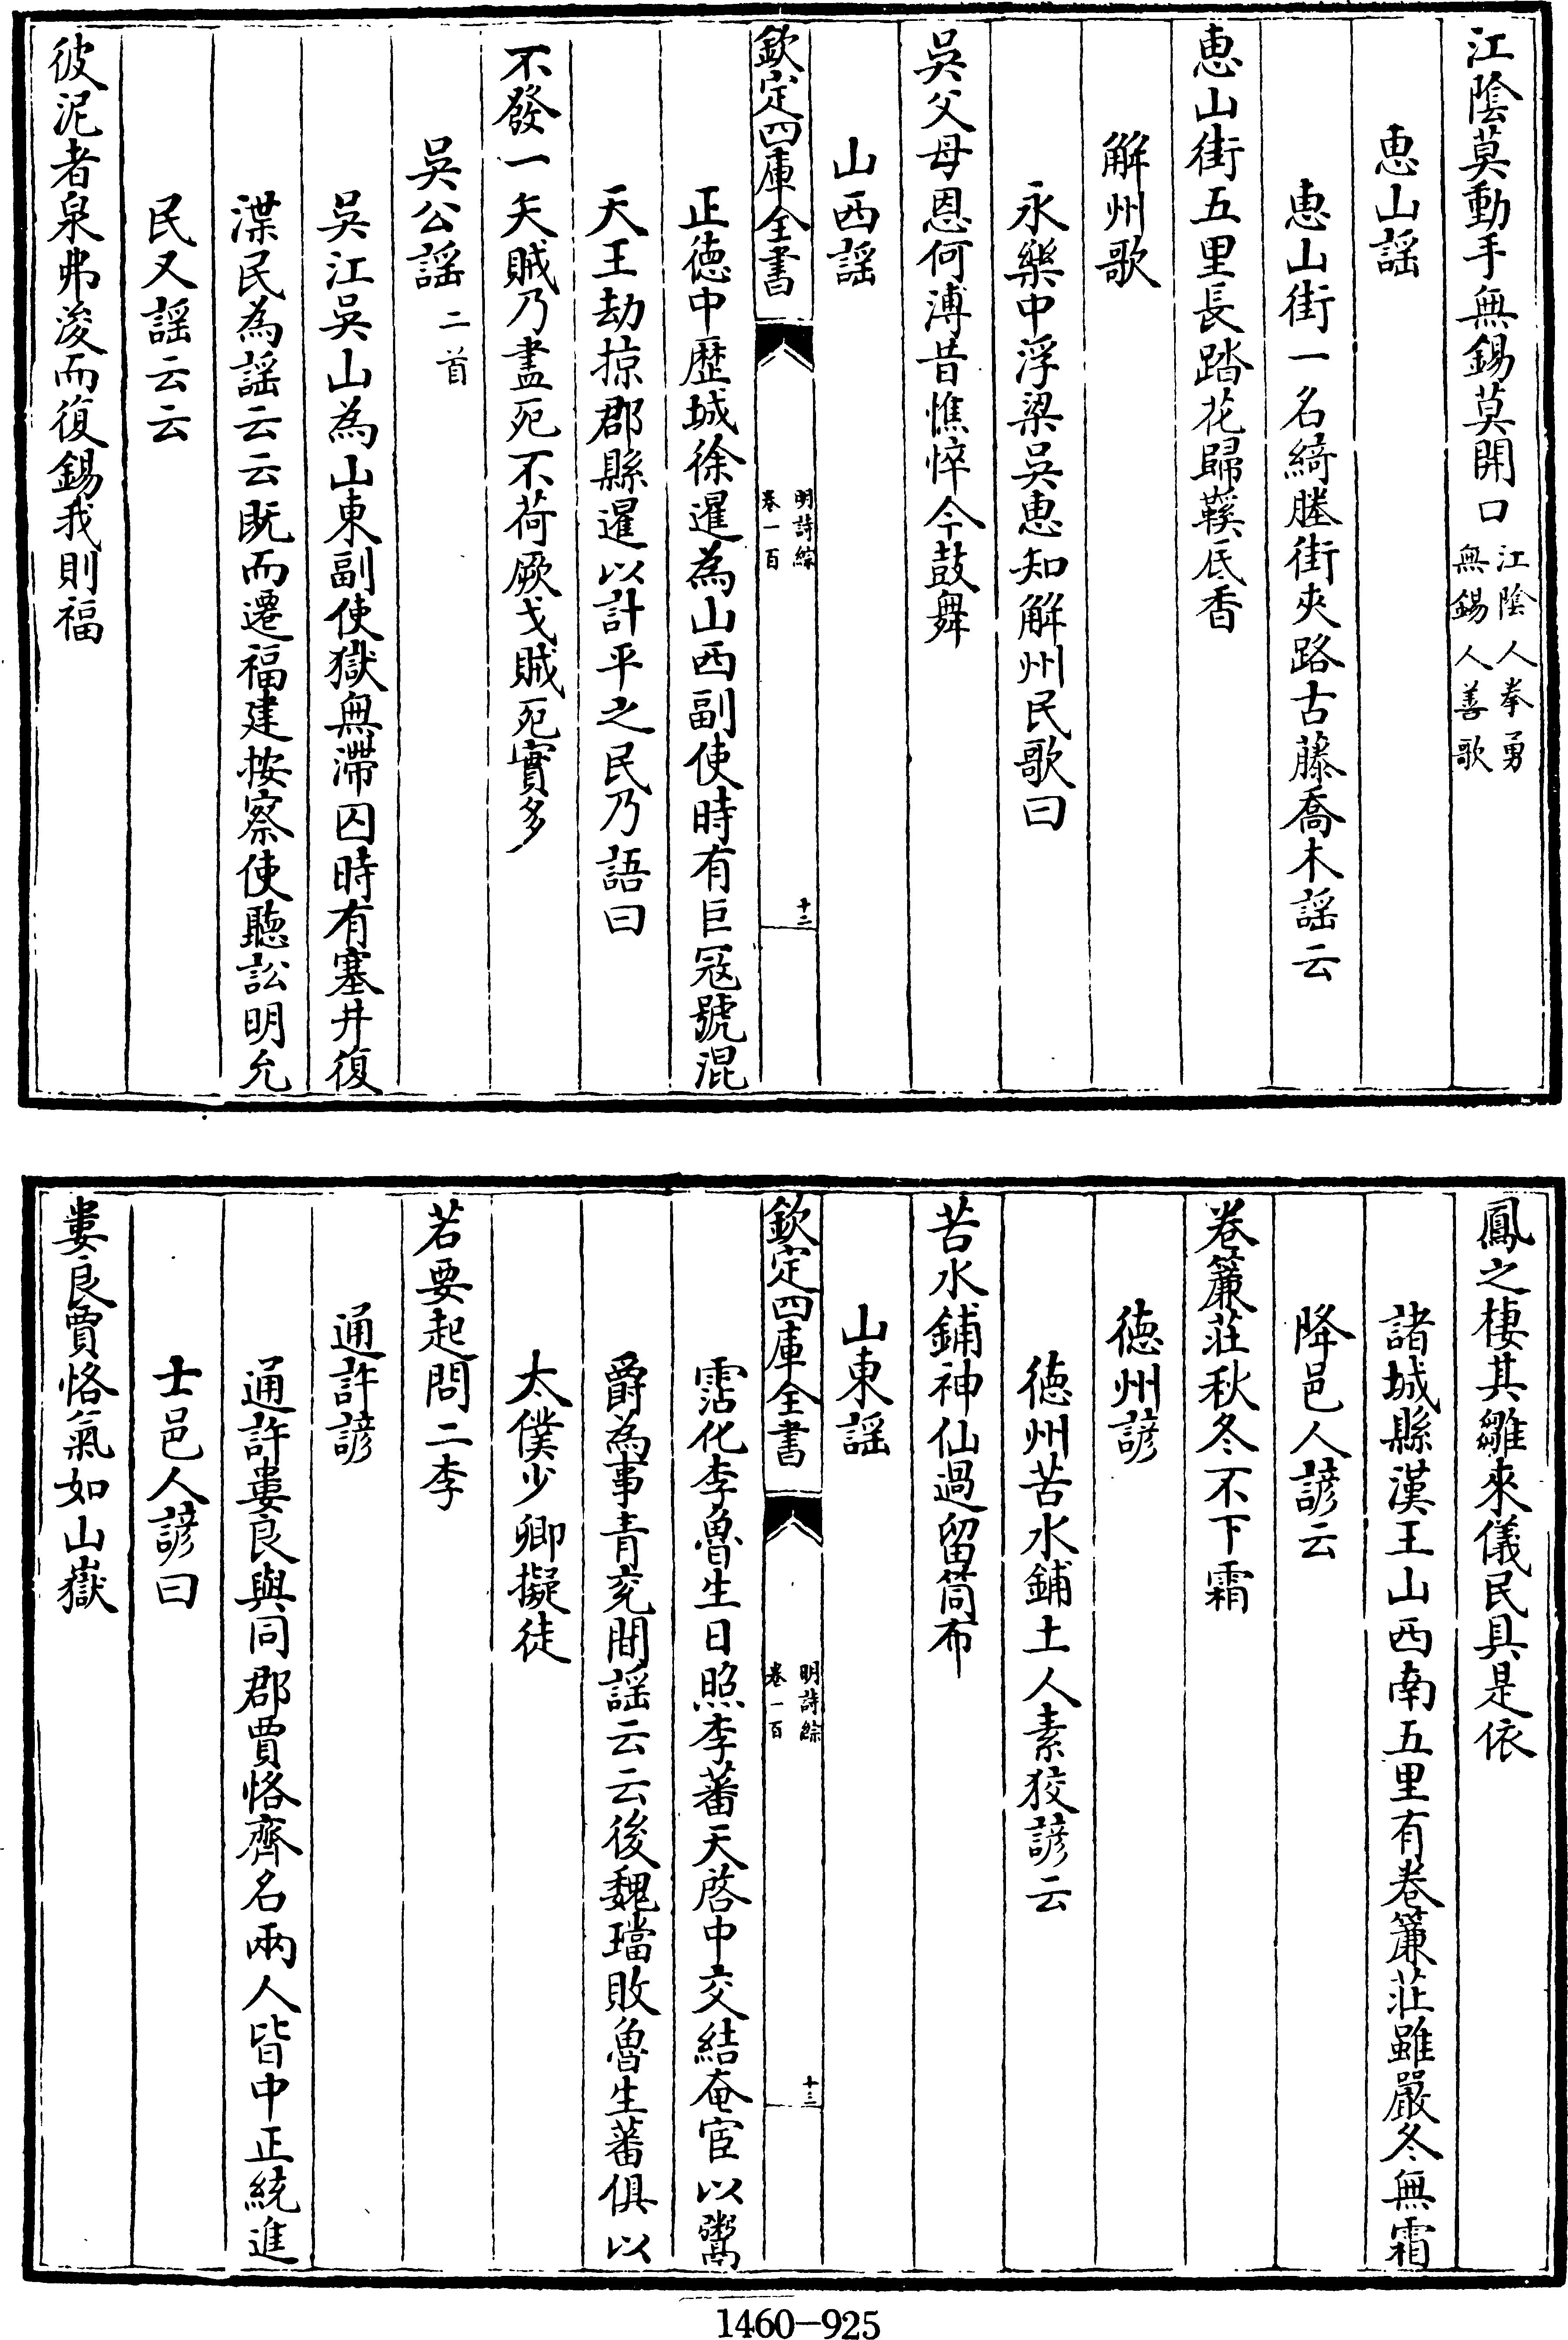 江陰莫動手無錫莫開口江陰人拳勇
無錫人善歌
恵山謡
恵山街一名綺塍街夾路古藤喬木謡云
恵山街五里長踏花歸鞵底香
解州歌
永樂中浮梁吳恵知解州民歌曰
吳父母恩何溥昔憔悴今鼓舞
山西謡
欽定四庫全書
明詩綜
卷一百
十二
正徳中歴城徐暹為山西副使時有巨冦號混
天王劫掠郡縣暹以計平之民乃語曰
不發一矢賊乃盡死不荷厥戈賊死實多
吳公謡二首
吳江吳山為山東副使獄無滯囚時有塞井復
渫民為謡云云既而遷福建按察使聽訟明允
民又謡云云
彼泥者泉弗浚而復錫我則福
鳳之棲其雛來儀民具是依
諸城縣漢王山西南五里有卷簾莊雖嚴冬無霜
降邑人諺云
卷簾莊秋冬不下霜
徳州諺
徳州苦水鋪土人素狡諺云
苦水鋪神仙過留筒布
山東謡
欽定四庫全書
明詩綜
卷一百
十三
霑化李魯生日照李蕃天啓中交結奄宦以鬻
爵為事青兖間謡云云後魏璫敗魯生蕃俱以
太僕少卿擬徒
若要起問二李
通許諺
通許婁良與同郡賈恪齊名兩人皆中正統進
士邑人諺曰
婁良賈恪氣如山嶽
1460-925